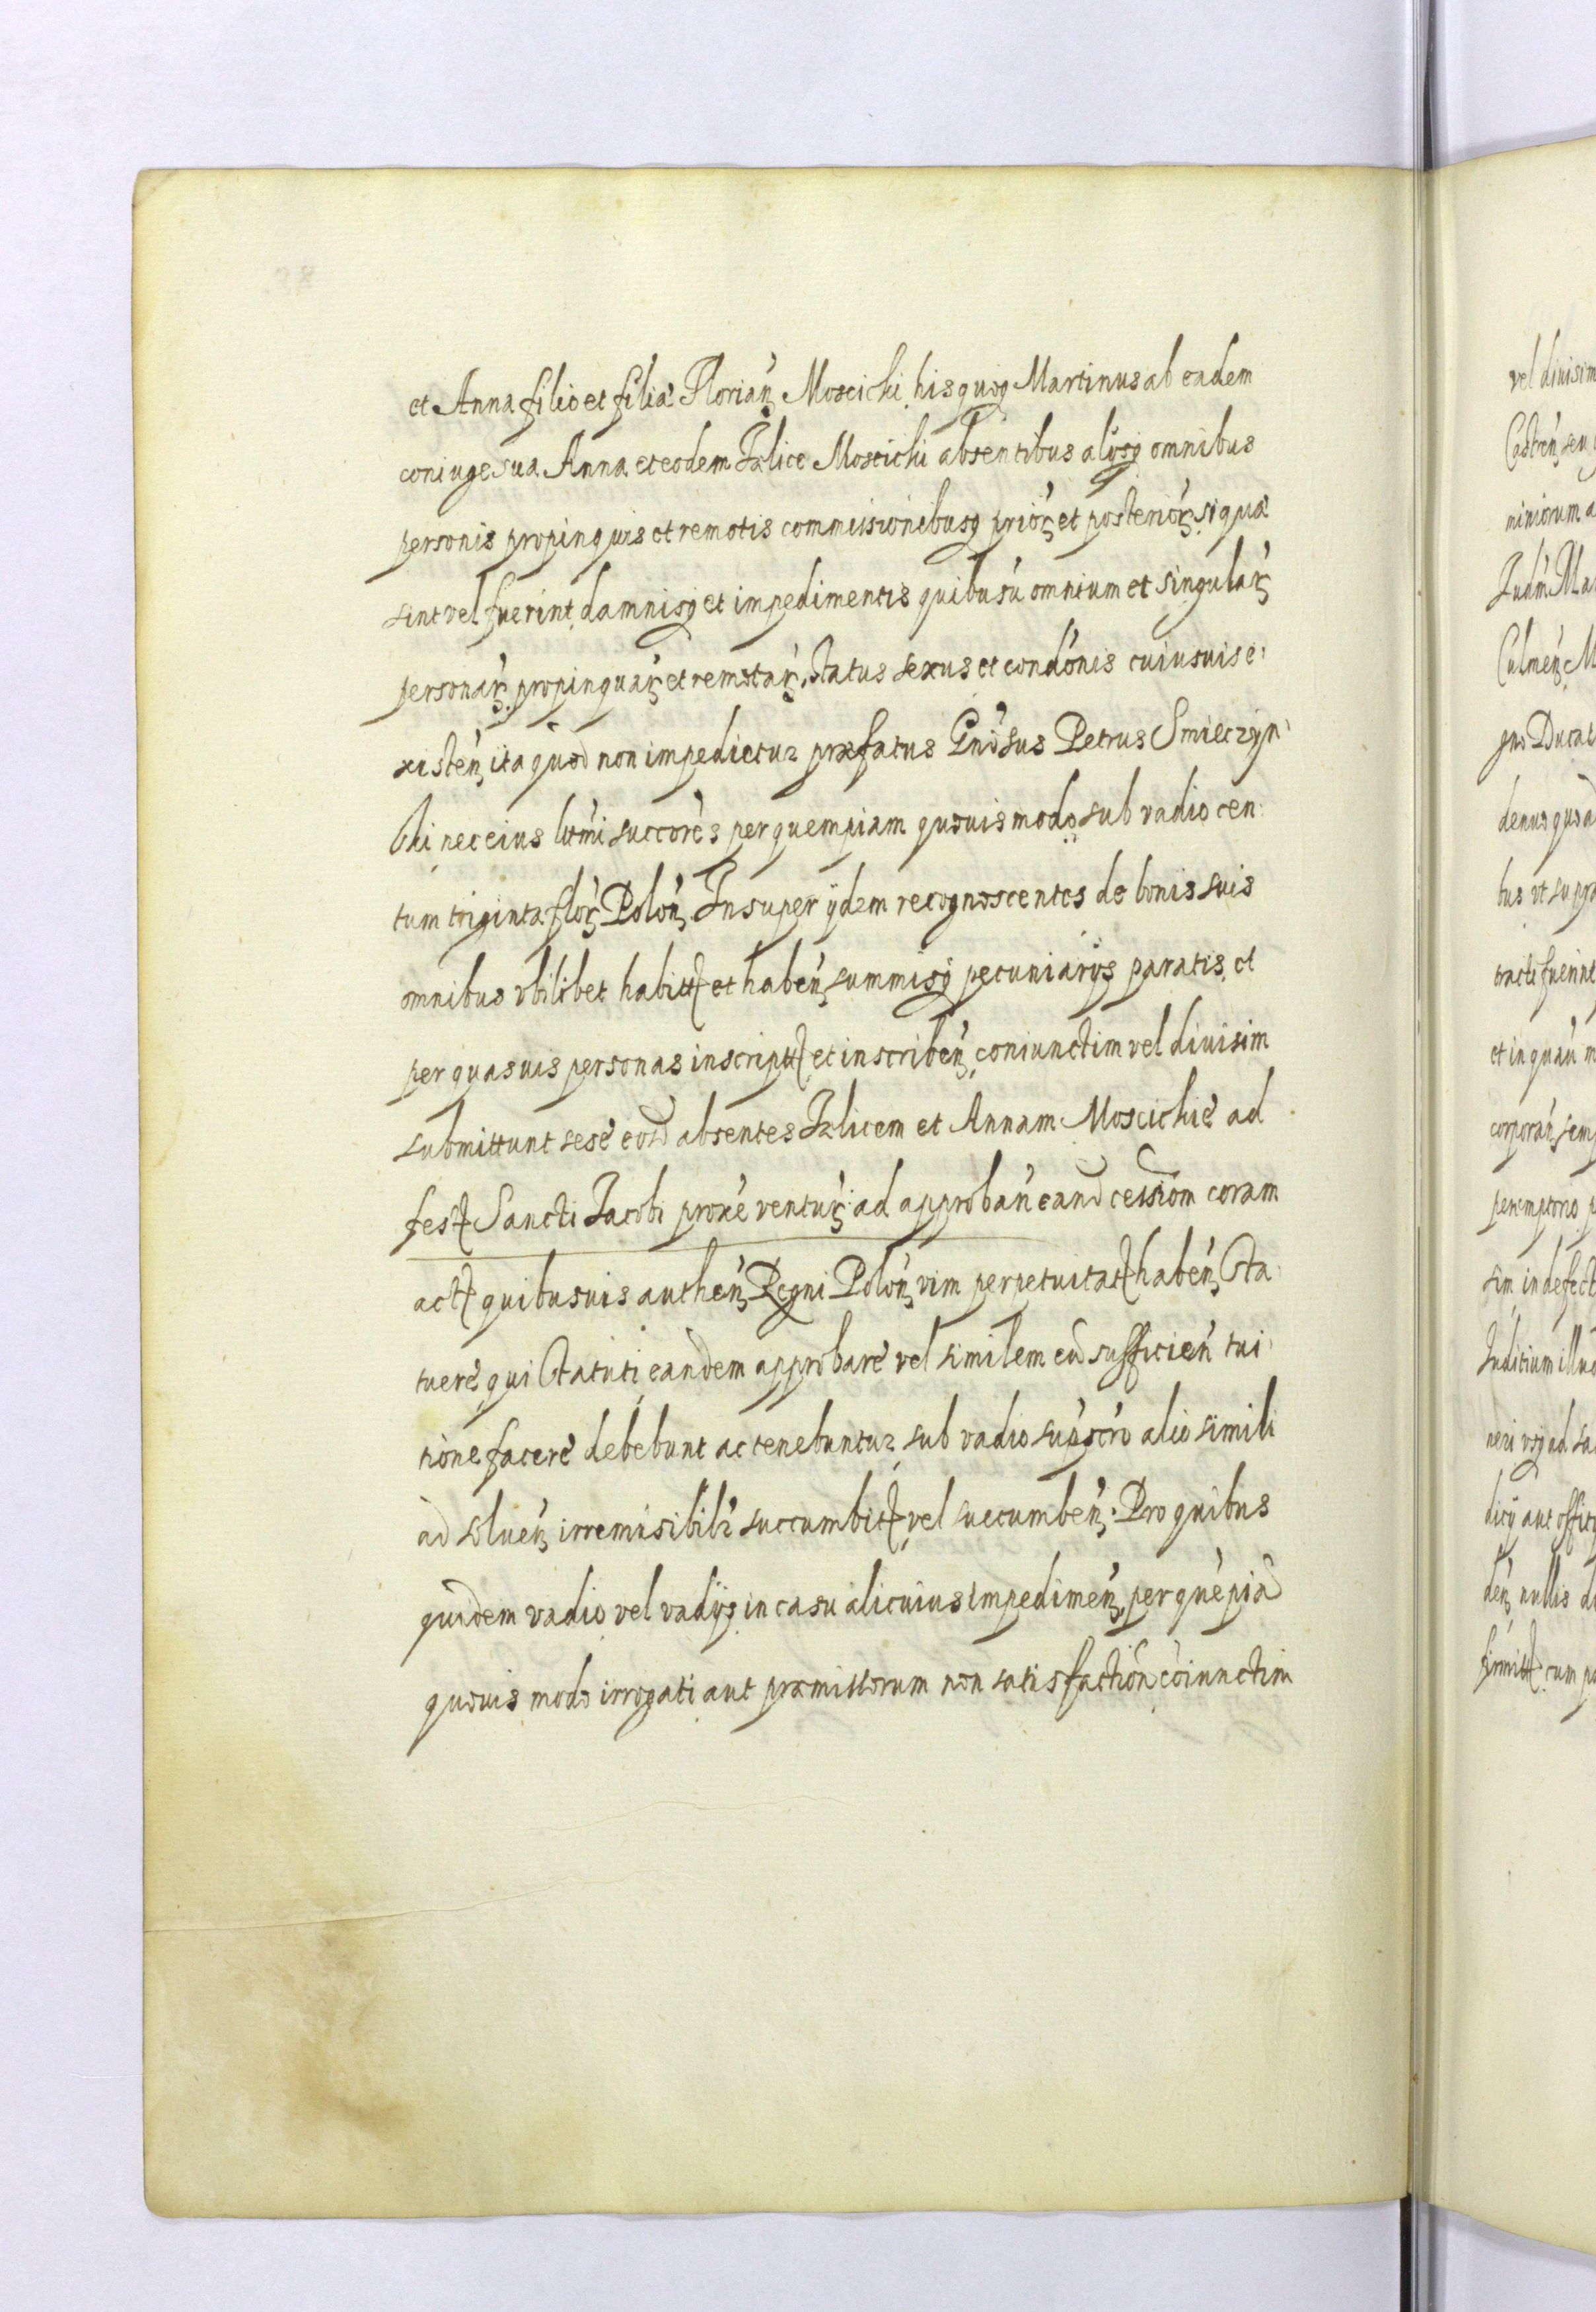 et Anna filio et filiæ Florian Moscicki, his quoq Martinus ab eadem
coniuge sua Anna et eodem Felice Moscicki absentibus alijsq omnibus
personis propinquis et remotis commissionibusq prior et posterior, si quæ
sint vel fuerint, damnisq et impedimentis quibusu omnium et singular
personar, propinquar et remotar, status sexus et condonis cuiusuis e:
xisten, ita quod non impedietur præfatus Gnosus Petrus Smieczyn:
ski nec eius lttmi succores per quempiam quouis modo, sub vadio cen:
tum triginta flor Polon. Insuper ijdem recognoscentes de bonis suis
omnibus vbilibet habitt et haben, summisq pecuniarijs paratis, et
per quasuis personas inscriptt, et inscriben, coniunctim vel diuisim
submittunt sese eosd absentes Felicem et Annam Moscickie ad
fest Sancti Jacobi proxe ventur: ad approban eand cessiom coram
act quibusuis authen Regni Polon, vim perpetuitat haben, sta:
tuere, qui statuti, eandem approbare vel similem cu sufficien tui:
tione facere debebunt ac tenebuntur, sub vadio supscro alio simili
ad soluen irremissibilr succumbitt, vel succumben: Pro quibus
quidem vadio vel vadijs, in casu alicuius impedimen, per quepia
quouis modo irrogati, aut præmissorum non satisfaction, coiunctim
vel diuisim
Castren, seu
miniorum a
Culmen, M
gno Ducat
denuo quoad
bus vt supra
tracti fuerint
et in quau m
corporan, sem
peremptorio p
sim, indefect
Juditium illud
neri vsq ad sa
dicij aut officij
den, nullis di
firmitt, cum pa